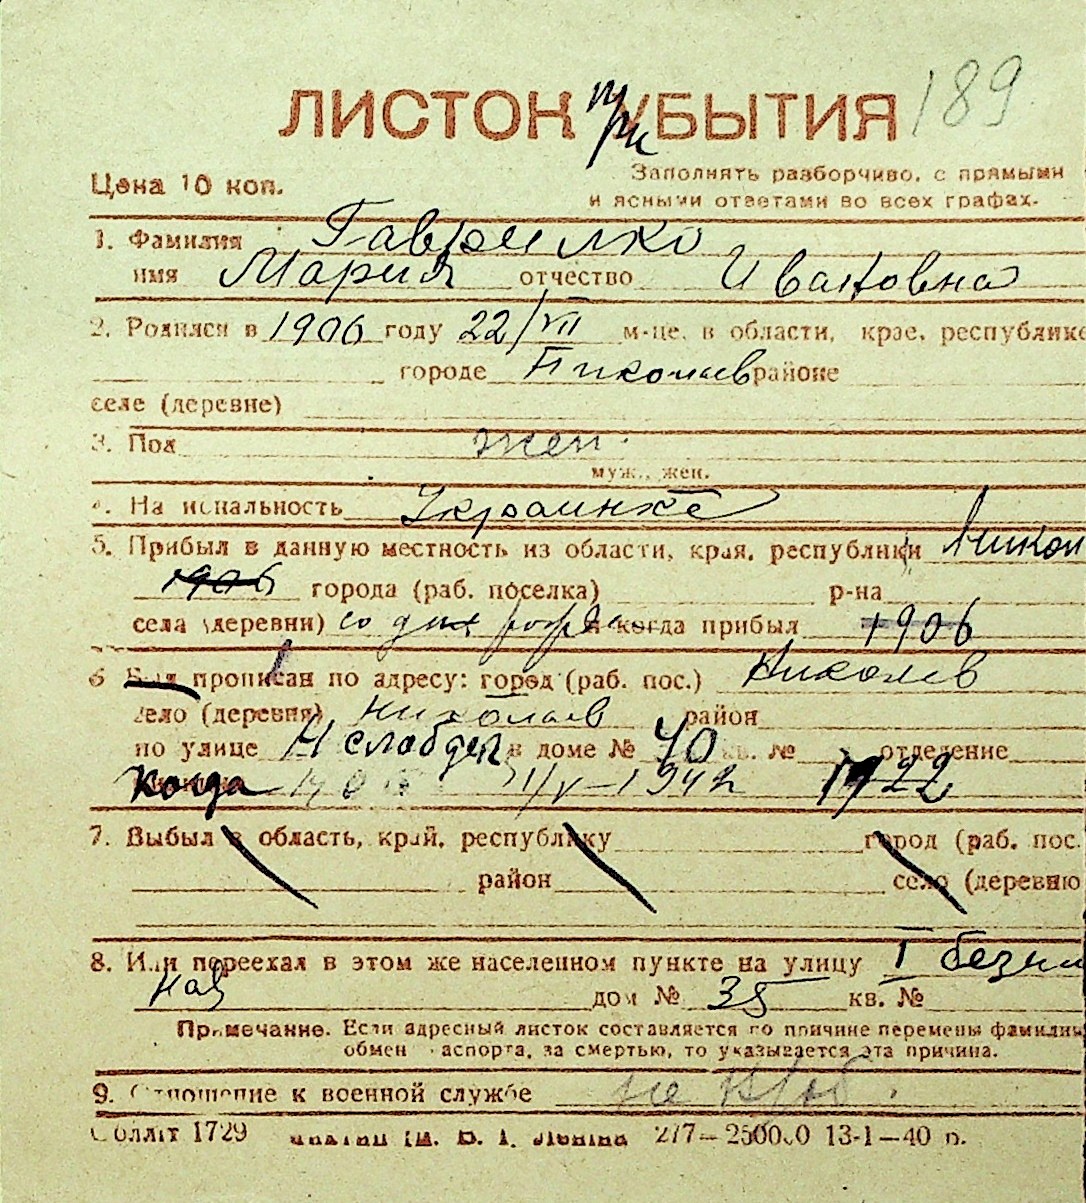 189
ЛИСТОК при УБЫТИЯ
Цена 10 коп.
Заполнять разборчиво, с прямыми
и ясными ответами во всех графах.
1. Фамилия Гаврилко
имя Мария отчество Ивановна
2. Родился в 1906 году 22/VII м-це, в области, крае, республике
городе Николаев районе
селе (деревне)
3. Пол жен.
муж., жен.
4. Национальность Украинка
5. Прибыл в данную местность из области, края, республики Никол
1906 города (раб. поселка) р-на
села (деревни) со дня рожд и когда прибыл 1906
6 Был прописан по адресу: город (раб. пос.) Николаев
село (деревня) Николаев район
по улице Н слободы в доме № 40 кв. № отделение
когда 1/V-1942 1922
7. Выбыл в область, край, республику город (раб. пос.
район село (деревню
8. Или переехал в этом же населенном пункте на улицу I безы
ная дом № 35 кв. №
Примечание. Если адресный листок составляется по причине перемены фамилии,
обмен паспорта, за смертью, то указывается эта причина.
9. Отношение к военной службе не
Облліт 1729 ім. В. І. Леніна 277—250000 13-1—40 р.